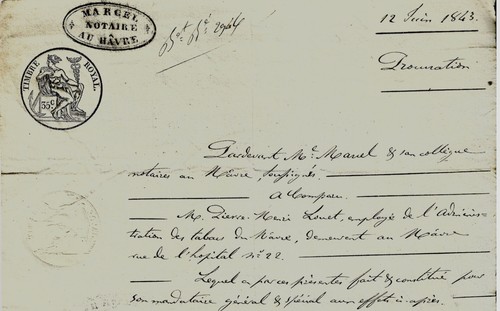 MARCEL
NOTAIRE
AU HÂVRE
12 Juin 1843.
TIMBRE ROYAL.
35c
Procuration
Pardevant Me. Marcel & son collègue
notaires au Hâvre, soussignés.
A Comparu.
M. Pierre Henri Louet, employé de l'Adminis-
tration des tabacs du Hâvre, demeurant au Hâvre
rue de l'hopital no. 22.
Lequel a par ces présentes fait & constitué pour
son mandataire général & spécial aux effets ci-après.